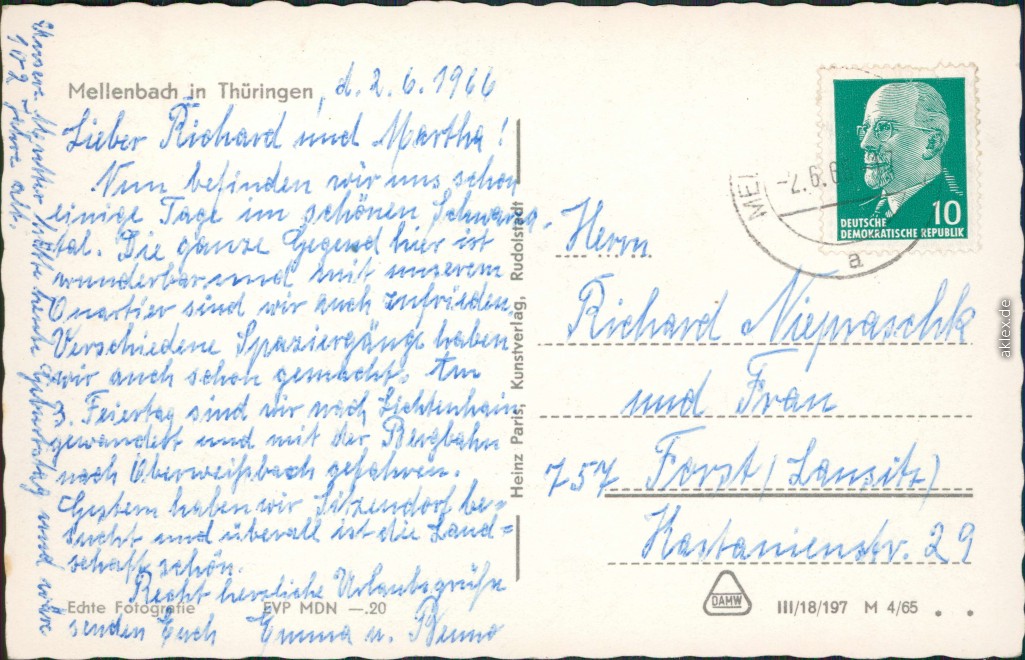 Mellenbach in Thüringen, d. 2.6.1966
Lieber Richard und Martha!
Nun befinden wir uns schon
einige Tage im schönen Schwarza-
tal. Die ganze Gegend hier ist
wunderbar und mit unserem
Quartier sind wir auch zufrieden.
Verschiedene Spaziergänge haben
wir auch schon gemacht. Am
3. Feiertag sind wir nach Lichtenhain
gewandert und mit der Bergbahn
nach Oberweißbach gefahren.
Gestern haben wir Sitzendorf be-
sucht und überall ist die Land-
schaft schön.
Recht herzliche Urlaubsgrüße
senden Euch Emma u. Benno
Unsere Mutter hätte heute Geburtstag und wäre
102 Jahre alt.
Echte Fotografie EVP MDN —.20
Heinz Paris, Kunstverlag, Rudolstadt
MEL
-2.6.66
a
DEUTSCHE
DEMOKRATISCHE REPUBLIK
10
Herrn
Richard Niepraschk
und Frau
757 Forst (Lausitz)
Kastanienstr. 29
DAMW
III/18/197 M 4/65
aklex.de